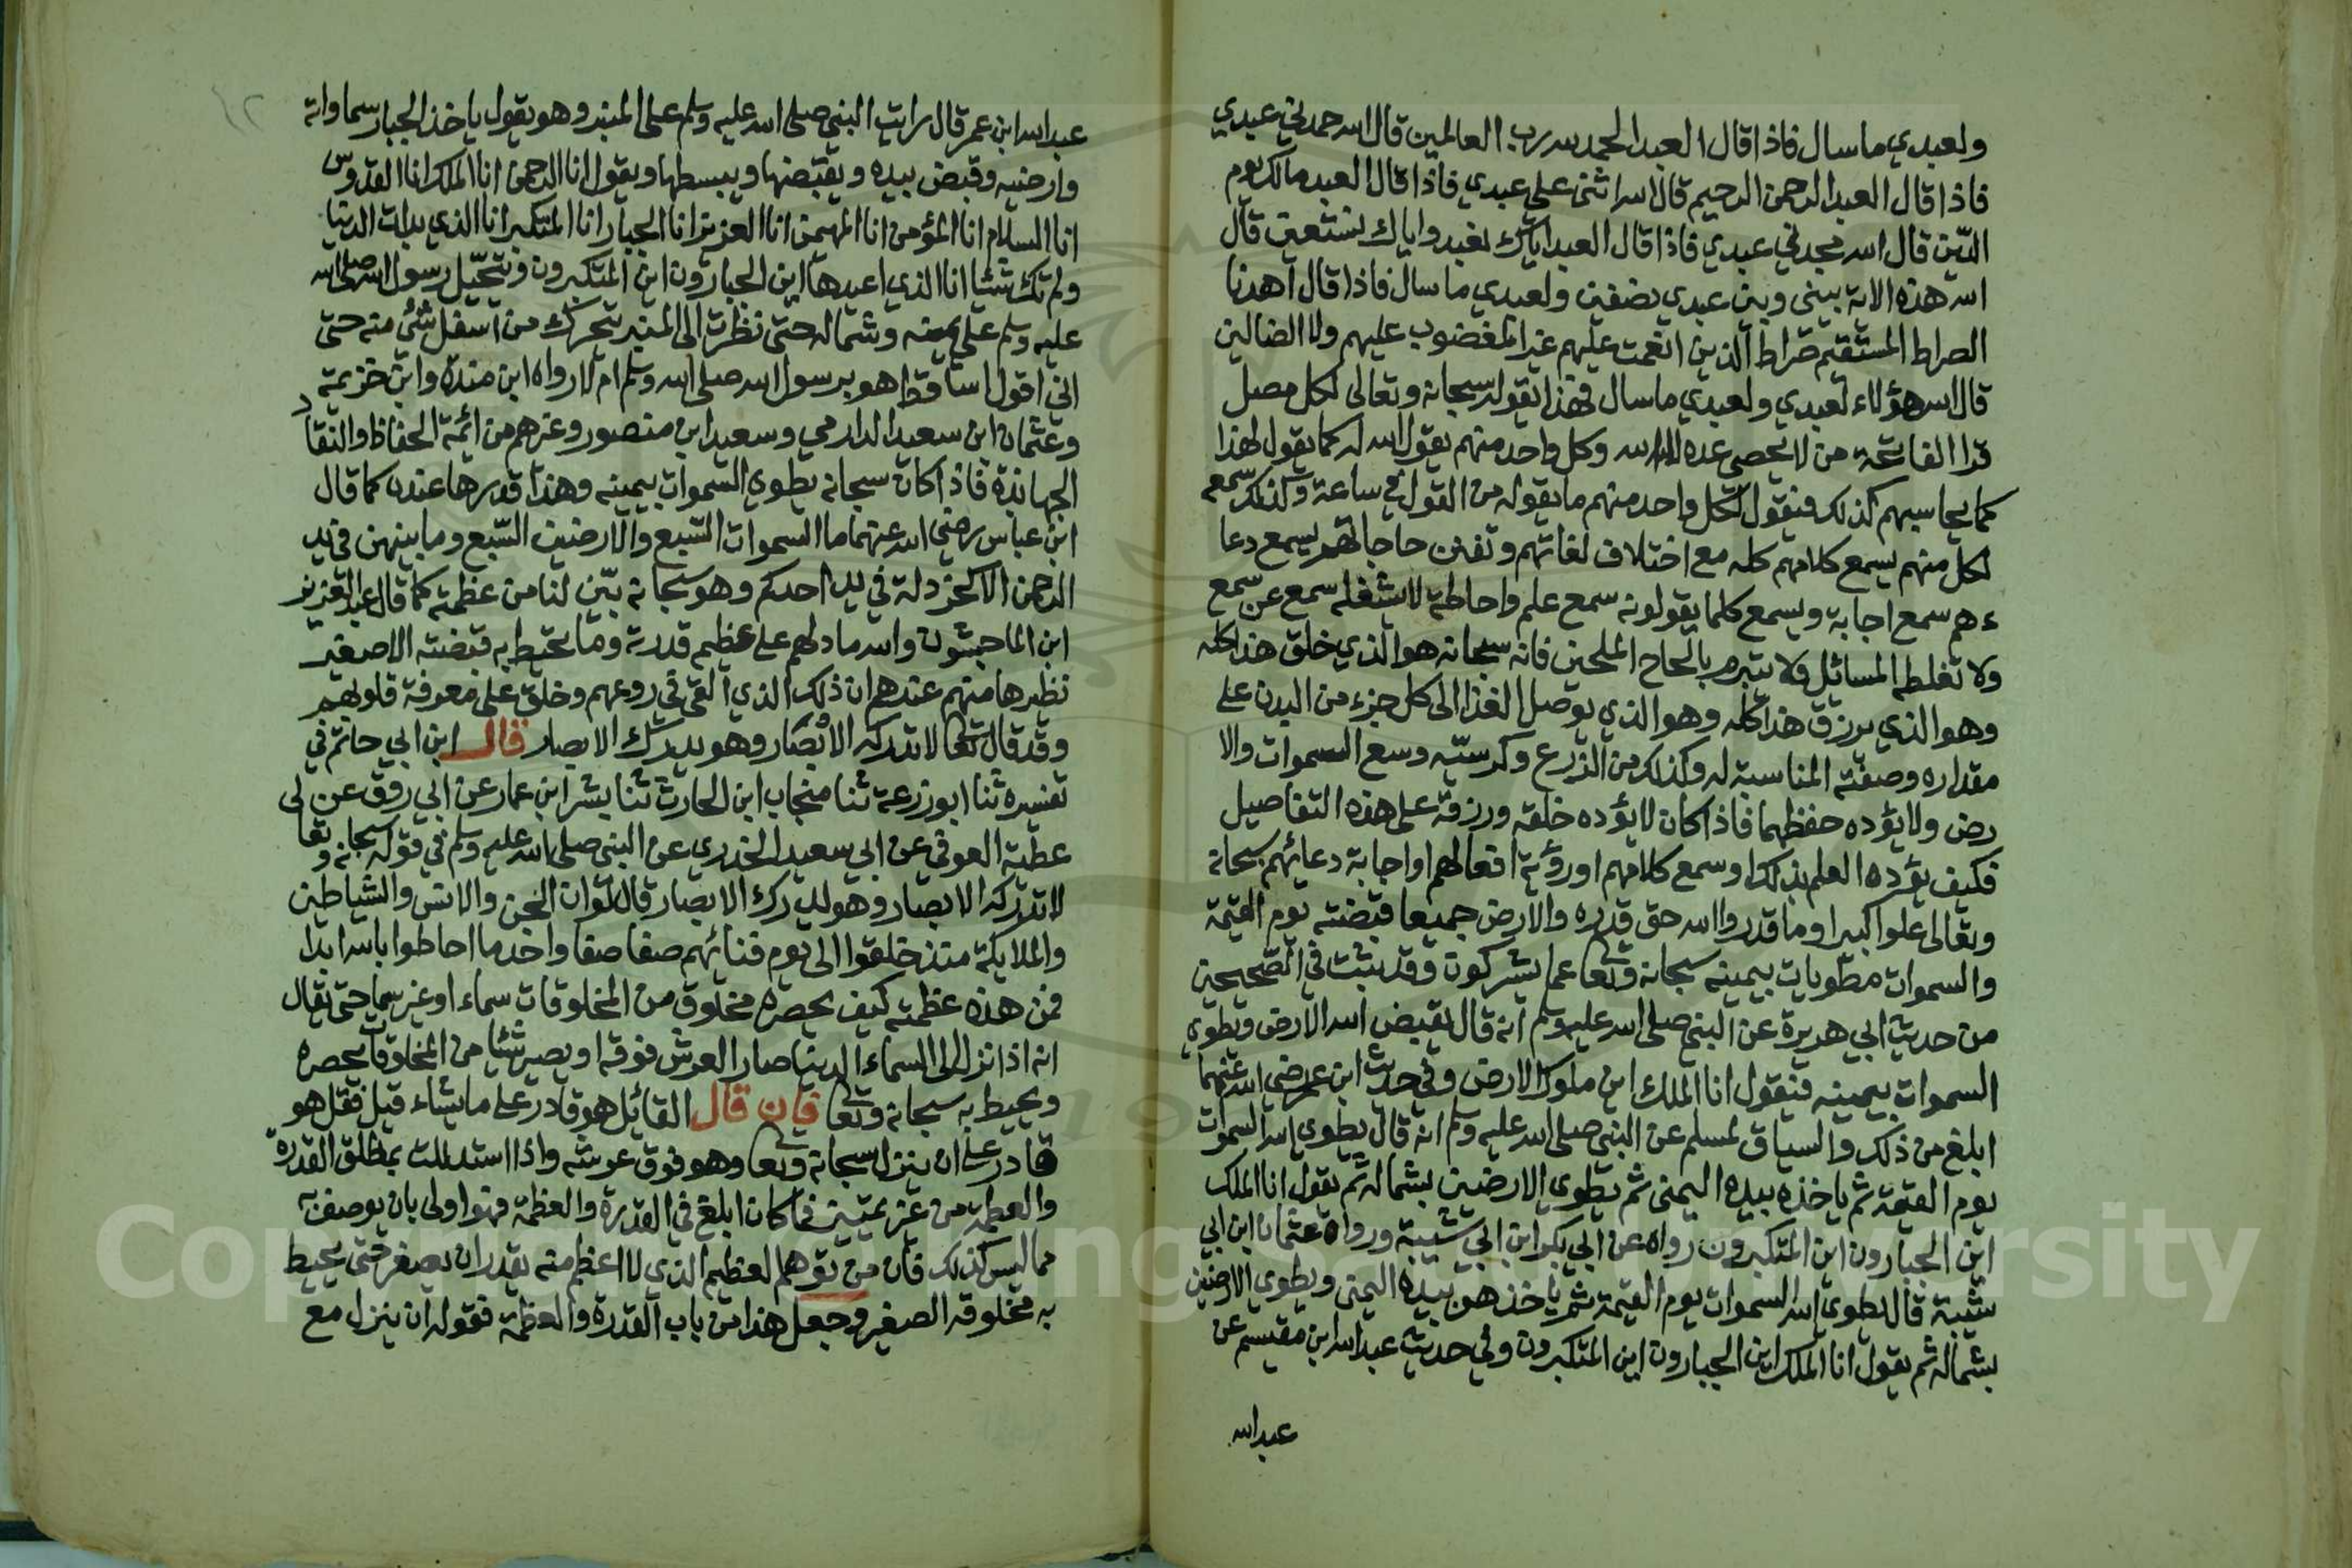 ولعبدي ما سال فاذا قال العبد الحمد لله رب العالمين قال الله حمدني عبدي
فاذا قال العبد الرحمن الرحيم قال الله اثنى علي عبدي فاذا قال العبد مالك يوم
الدين قال الله مجدني عبدي فاذا قال العبد اياك نعبد واياك نستعين قال
الله هذه الاية بيني وبين عبدي نصفين ولعبدي ما سال فاذا قال اهدنا
الصراط المستقيم صراط الذين انعمت عليهم غير المغضوب عليهم ولا الضالين
قال الله هؤلاء لعبدي ولعبدي ما سال فهذا يقوله سبحانه وتعالى لكل مصل
قرا الفاتحة من لا يحصي عدده الا الله وكل واحد منهم يقول الله له كما يقول لهذا
كما يحاسبهم كذلك فيقول لكل واحد منهم ما يقوله من القول في ساعة وكذلك سمعه
لكل منهم يسمع كلامهم كله مع اختلاف لغاتهم وتفنن حاجاتهم يسمع دعا
ءهم سمع اجابة ويسمع كلما يقولونه سمع علم واحاطة لا يشغله سمع عن سمع
ولا تغلطه المسائل ولا يتبرم بالحاح الملحين فانه سبحانه هو الذي خلق هذا كله
وهو الذي يرزق هذا كله وهو الذي يوصل الغذا الى كل جزء من البدن على
مقداره وصفته المناسبة له وكذلك من الزرع وكرسيه وسع السموات والا
رض ولا يؤده حفظهما فاذا كان لا يؤده خلقه ورزقه على هذه التفاصيل
فكيف يؤده العلم بذلك او سمع كلامهم او رؤية افعالهم او اجابة دعائهم سبحانه
وتعالى علوا كبيرا وما قدروا الله حق قدره والارض جميعا قبضته يوم القيمة
والسموات مطويات بيمينه سبحانه وتعا عما يشركون وقد ثبت في الصحيحين
من حديث ابي هريرة عن النبي صلى الله عليه وسلم انه قال يقبض الله الارض ويطوي
السموات بيمينه فيقول انا الملك اين ملوك الارض وفي حديث ابن عمر رضي الله عنهما
ابلغ من ذلك والسياق لمسلم عن النبي صلى الله عليه وسلم انه قال يطوي الله السموات
يوم القيمة ثم ياخذه بيده اليمنى ثم يطوي الارضين بشماله ثم يقول انا الملك
اين الجبارون اين المتكبرون رواه عن ابي بكر ابن ابي شيبة ورواه عثمان ابن ابي
شيبة قال يطوي الله السموات يوم القيمة ثم ياخذهن بيده اليمنى ويطوي الارضين
بشماله ثم يقول انا الملك اين الجبارون اين المتكبرون وفي حديث عبد الله ابن مقيسم عن
عبد الله
١٢
عبد الله ابن عمر قال رايت النبي صلى الله عليه وسلم على المنبر وهو يقول ياخذ الجبار سماواته
وارضيه وقبض بيده ويقبضها ويبسطها ويقول انا الرحمن انا الملك انا القدوس
انا السلام انا المؤمن انا المهيمن انا العزيز انا الجبار انا المتكبر انا الذي بدات الدنيا
ولم تك شيئا انا الذي اعيدها اين الجبارون اين المتكبرون ويتحيل رسول الله صلى الله
عليه وسلم على يمينه وشماله حتى نظرت الى المنبر يتحرك من اسفل شئ منه حتى
اني اقول اساقط هو برسول الله صلى الله وسلم ام لا رواه ابن مندة وابن خزيمة
وعثمان ابن سعيد الدارمي وسعيد ابن منصور وغيرهم من ائمة الحفاظ والنقاد
الجهابذة فاذا كان سبحانه يطوي السموات بيمينه وهذا قدرها عنده كما قال
ابن عباس رضي الله عنهما ما السموات السبع والارضين السبع وما بينهن في يد
الرحمن الا كخردلة في يد احدكم وهو سبحانه بين لنا من عظمته كما قال عبد العزيز
ابن الماجشون والله ما دلهم على عظيم قدرته وما تحيط به قبضته الا صغير
نظيرها منهم عندهم ان ذلك الذي القي في روعهم وخلق على معرفة قلوبهم
وقد قال تعا لا تدركه الابصار وهو يدرك الابصار قال ابن ابي حاتم في
تفسيره ثنا ابو زرعة ثنا منجاب ابن الحارث ثنا بشر ابن عمار عن ابي روق عن
عطية العوفي عن ابي سعيد الخدري عن النبي صلى الله عليه وسلم في قوله سبحانه وتعا
لا تدركه الابصار وهو يدرك الابصار قال لو ان الجن والانس والشياطين
والملايكة منذ خلقوا الى يوم فنائهم صفا صفا واحد ما احاطوا بالله ابدا
فمن هذه عظمته كيف يحصره مخلوق من المخلوقات سماء او غير سما حتى يقال
انه اذا نزل الى السماء الدنيا صار العرش فوقه او يصير شئا من المخلوقات يحصره
ويحيط به سبحانه وتعا فان قال القائل هو قادر على ما يشاء قيل فقل هو
قادر على ان ينزل سبحانه وتعا وهو فوق عرشه واذا استدللت بمطلق القدرة
والعظمة من غير تمييز فما كان ابلغ في القدرة والعظمة فهو اولى بان يوصف به
مما ليس كذلك فان من توهم العظيم الذي لا اعظم منه يقدر ان يصغر حتى يحيط
به مخلوقه الصغير وجعل هذا من باب القدرة والعظمة فقوله ان ينزل مع
Copyright © King Saud University